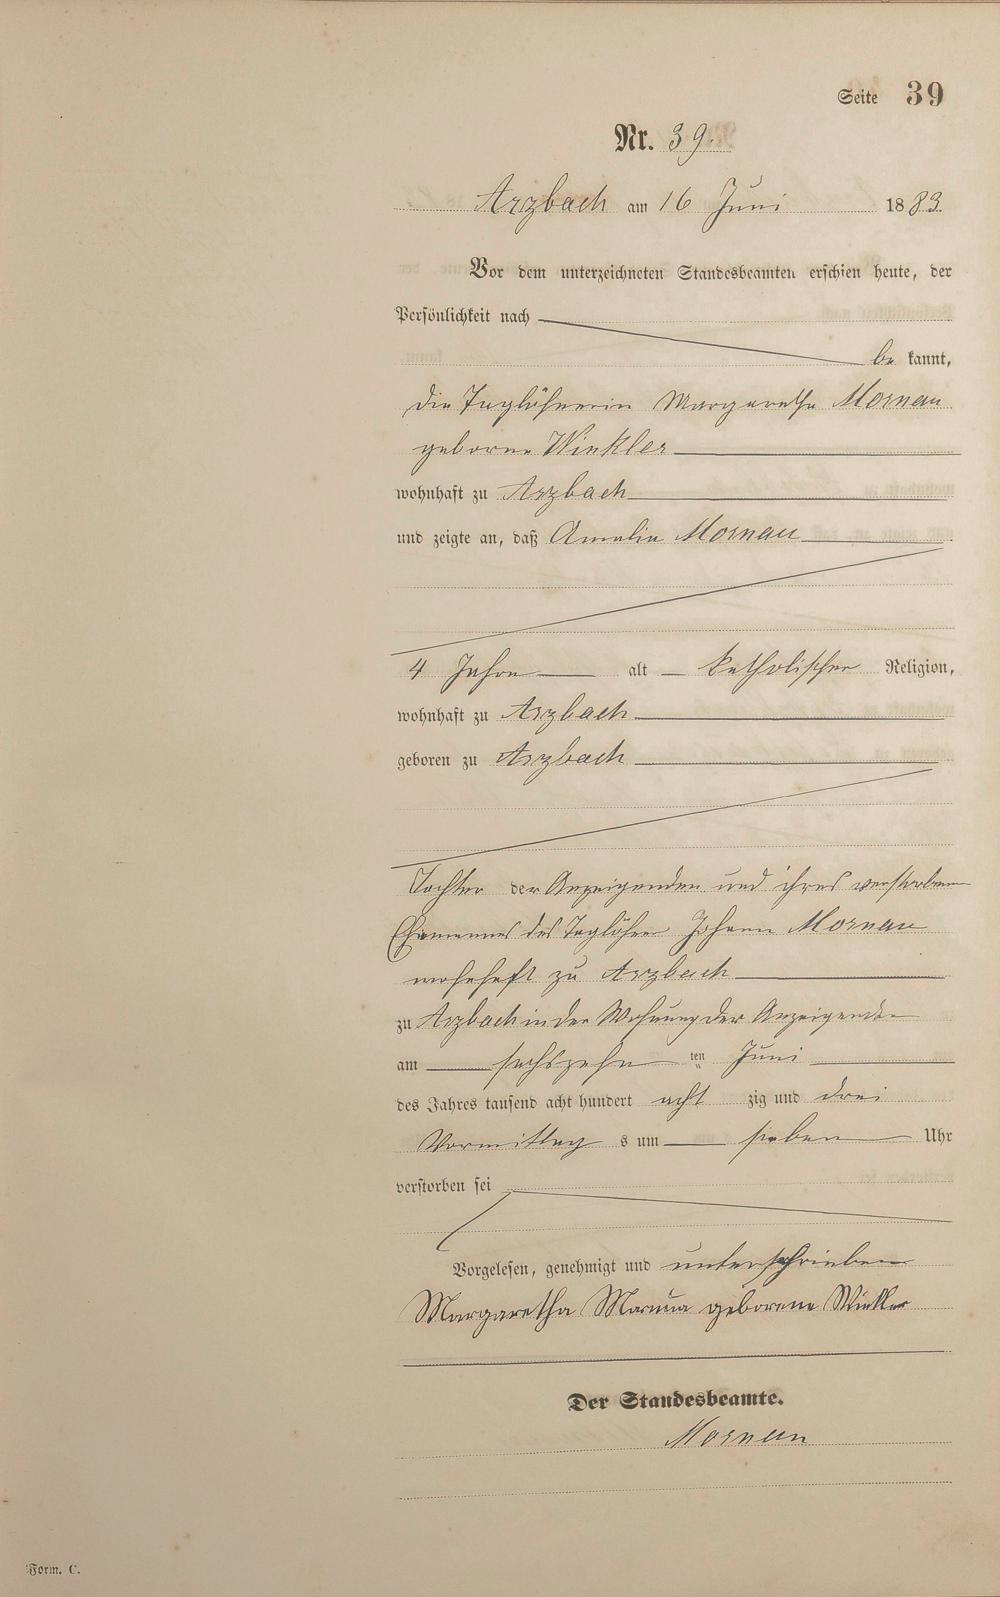 Seite 39
Nr. 39.
Arzbach am 16 Juni 1883
Vor dem unterzeichneten Standesbeamten erschien heute, der
Persönlichkeit nach
be kannt,
die Taglöhnerin Margaretha Mornau
geborne Winkler
wohnhaft zu Arzbach
und zeigte an, daß Amalia Mornau
4 Jahre alt katholischer Religion,
wohnhaft zu Arzbach
geboren zu Arzbach
Tochter der Anzeigenden und ihres verstorbenen
Ehemannes des Taglöhner Johann Mornau
wohnhaft zu Arzbach
zu Arzbach in der Wohnung der Anzeigenden
am sechszehn ten Juni
des Jahres tausend acht hundert acht zig und drei
Vormittag s um sieben Uhr
verstorben sei
Vorgelesen, genehmigt und unterschrieben
Margaretha geborene Winkler
Der Standesbeamte.
Mornau
Form. C.